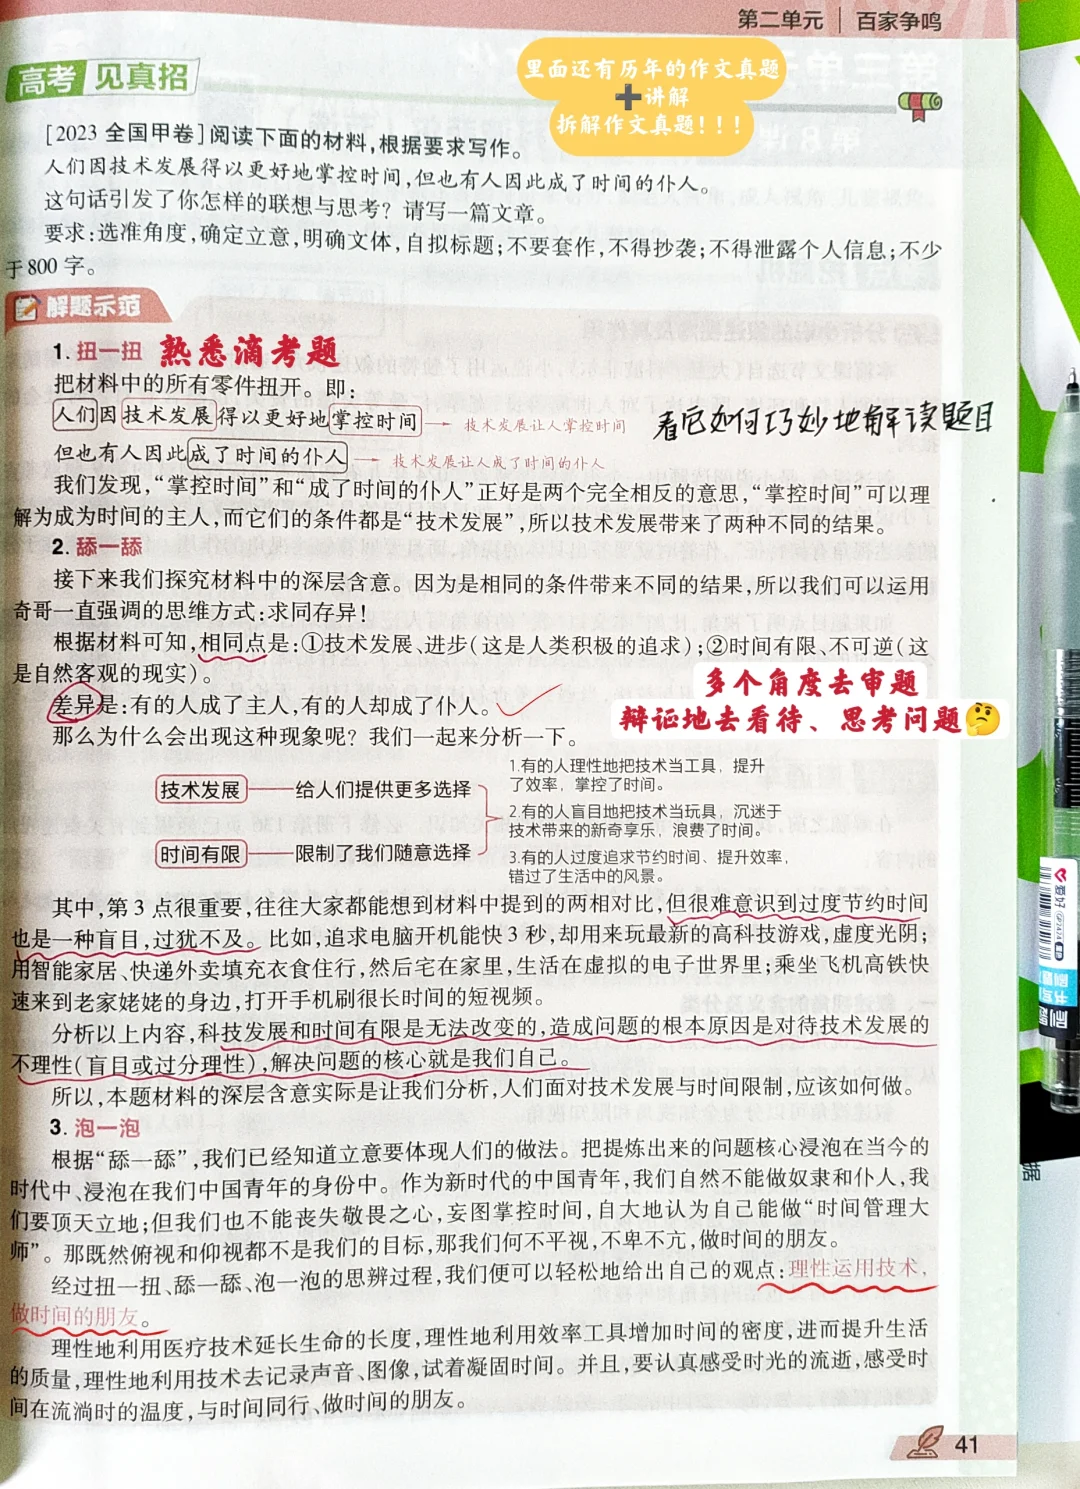 第二单元 | 百家争鸣
里面还有历年的作文真题
➕讲解
拆解作文真题！！！
高考 见真招
[2023 全国甲卷]阅读下面的材料,根据要求写作。
人们因技术发展得以更好地掌控时间,但也有人因此成了时间的仆人。
这句话引发了你怎样的联想与思考？请写一篇文章。
要求:选准角度,确定立意,明确文体,自拟标题;不要套作,不得抄袭;不得泄露个人信息;不少
于 800 字。
解题示范
1. 扭一扭 熟悉滴考题
把材料中的所有零件扭开。即:
人们因技术发展得以更好地掌控时间 → 技术发展让人掌控时间
看它如何巧妙地解读题目
但也有人因此成了时间的仆人 → 技术发展让人成了时间的仆人
我们发现,“掌控时间”和“成了时间的仆人”正好是两个完全相反的意思,“掌控时间”可以理
解为成为时间的主人,而它们的条件都是“技术发展”,所以技术发展带来了两种不同的结果。
2. 舔一舔
接下来我们探究材料中的深层含意。因为是相同的条件带来不同的结果,所以我们可以运用
奇哥一直强调的思维方式:求同存异!
根据材料可知,相同点是:①技术发展、进步(这是人类积极的追求);②时间有限、不可逆(这
是自然客观的现实)。
多个角度去审题
辩证地去看待、思考问题🤔
差异是:有的人成了主人,有的人却成了仆人。
那么为什么会出现这种现象呢？我们一起来分析一下。
技术发展——给人们提供更多选择
时间有限——限制了我们随意选择
1.有的人理性地把技术当工具，提升
了效率，掌控了时间。
2.有的人盲目地把技术当玩具，沉迷于
技术带来的新奇享乐，浪费了时间。
3.有的人过度追求节约时间、提升效率，
错过了生活中的风景。
其中,第 3 点很重要,往往大家都能想到材料中提到的两相对比,但很难意识到过度节约时间
也是一种盲目,过犹不及。比如,追求电脑开机能快 3 秒,却用来玩最新的高科技游戏,虚度光阴;
用智能家居、快递外卖填充衣食住行,然后宅在家里,生活在虚拟的电子世界里;乘坐飞机高铁快
速来到老家姥姥的身边,打开手机刷很长时间的短视频。
分析以上内容,科技发展和时间有限是无法改变的,造成问题的根本原因是对待技术发展的
不理性(盲目或过分理性),解决问题的核心就是我们自己。
所以,本题材料的深层含意实际是让我们分析,人们面对技术发展与时间限制,应该如何做。
3. 泡一泡
根据“舔一舔”,我们已经知道立意要体现人们的做法。把提炼出来的问题核心浸泡在当今的
时代中、浸泡在我们中国青年的身份中。作为新时代的中国青年,我们自然不能做奴隶和仆人,我
们要顶天立地;但我们也不能丧失敬畏之心,妄图掌控时间,自大地认为自己能做“时间管理大
师”。那既然俯视和仰视都不是我们的目标,那我们何不平视,不卑不亢,做时间的朋友。
经过扭一扭、舔一舔、泡一泡的思辨过程,我们便可以轻松地给出自己的观点:理性运用技术,
做时间的朋友。
理性地利用医疗技术延长生命的长度,理性地利用效率工具增加时间的密度,进而提升生活
的质量,理性地利用技术去记录声音、图像,试着凝固时间。并且,要认真感受时光的流逝,感受时
间在流淌时的温度,与时间同行、做时间的朋友。
41
爱好